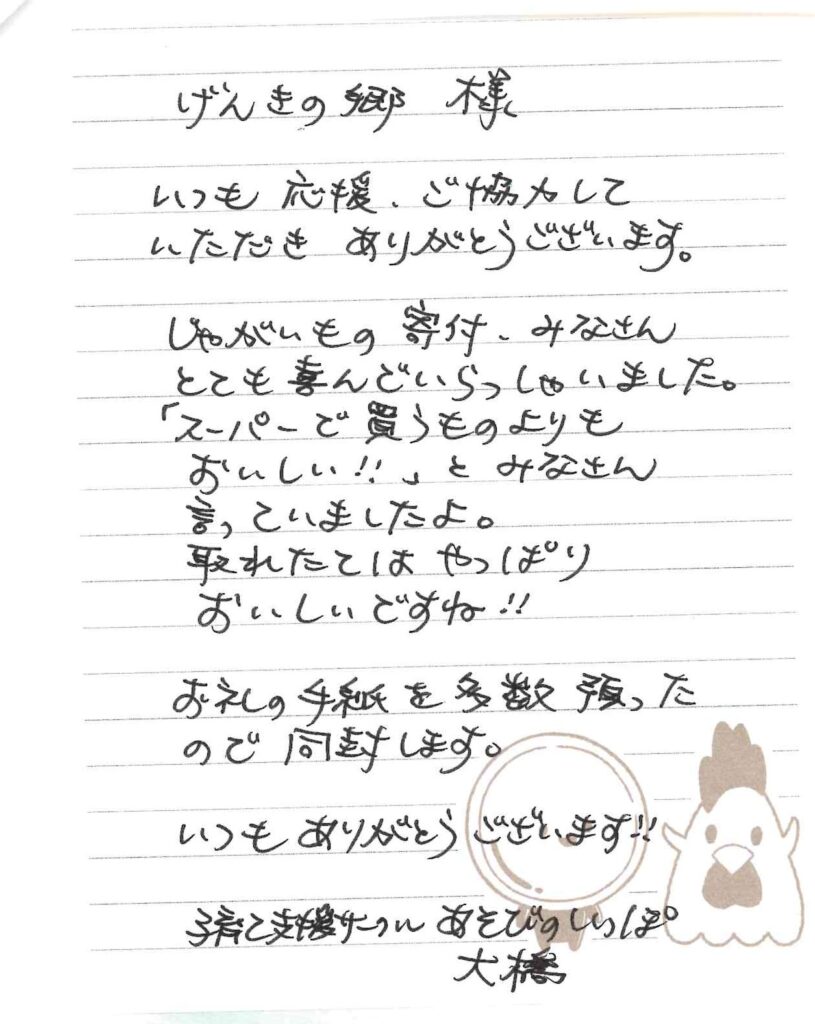 げんきの郷 様
いつも 応援、ご協力して
いただき ありがとうございます。
じゃがいもの 寄付、みなさん
とても喜んでいらっしゃいました。
「スーパーで買うものよりも
おいしい!!」と みなさん
言っていましたよ。
取れたては やっぱり
おいしいですね!!
お礼の手紙を多数 預った
ので 同封します。
いつも ありがとう ございます!!
子育て支援サークル あそびのしっぽ
大橋